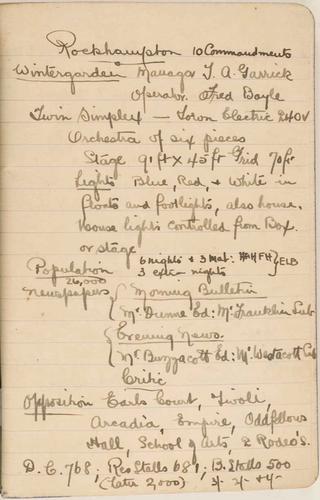 Rockhampton 10 Commandments
Wintergarden Manager T. A. Garrick
Operator. Fred Bayle
Twin Simplex — Town Electric 240V
Orchestra of six pieces
Stage 91ft X 45ft Grid 70ft
Lights Blue, Red, & White in
floats and footlights, also house.
House lights controlled from Box.
or stage
Population 6 nights & 3 Mat:
26,000 3 extra nights } ELB
Newspapers { Morning Bulletin
Mr. Dunne Ed: Mr. Franklin Sub
{ Evening News.
Mr Buzzacott Ed: Mr. Westacott Sub
Critic
Opposition Earls Court, Tivoli,
Arcadia, Empire, Oddfellows
Hall, School of Arts, 2 Rodeo's.
D. C. 768; Res Stalls 681; B. Stalls 500
(later 2,000)